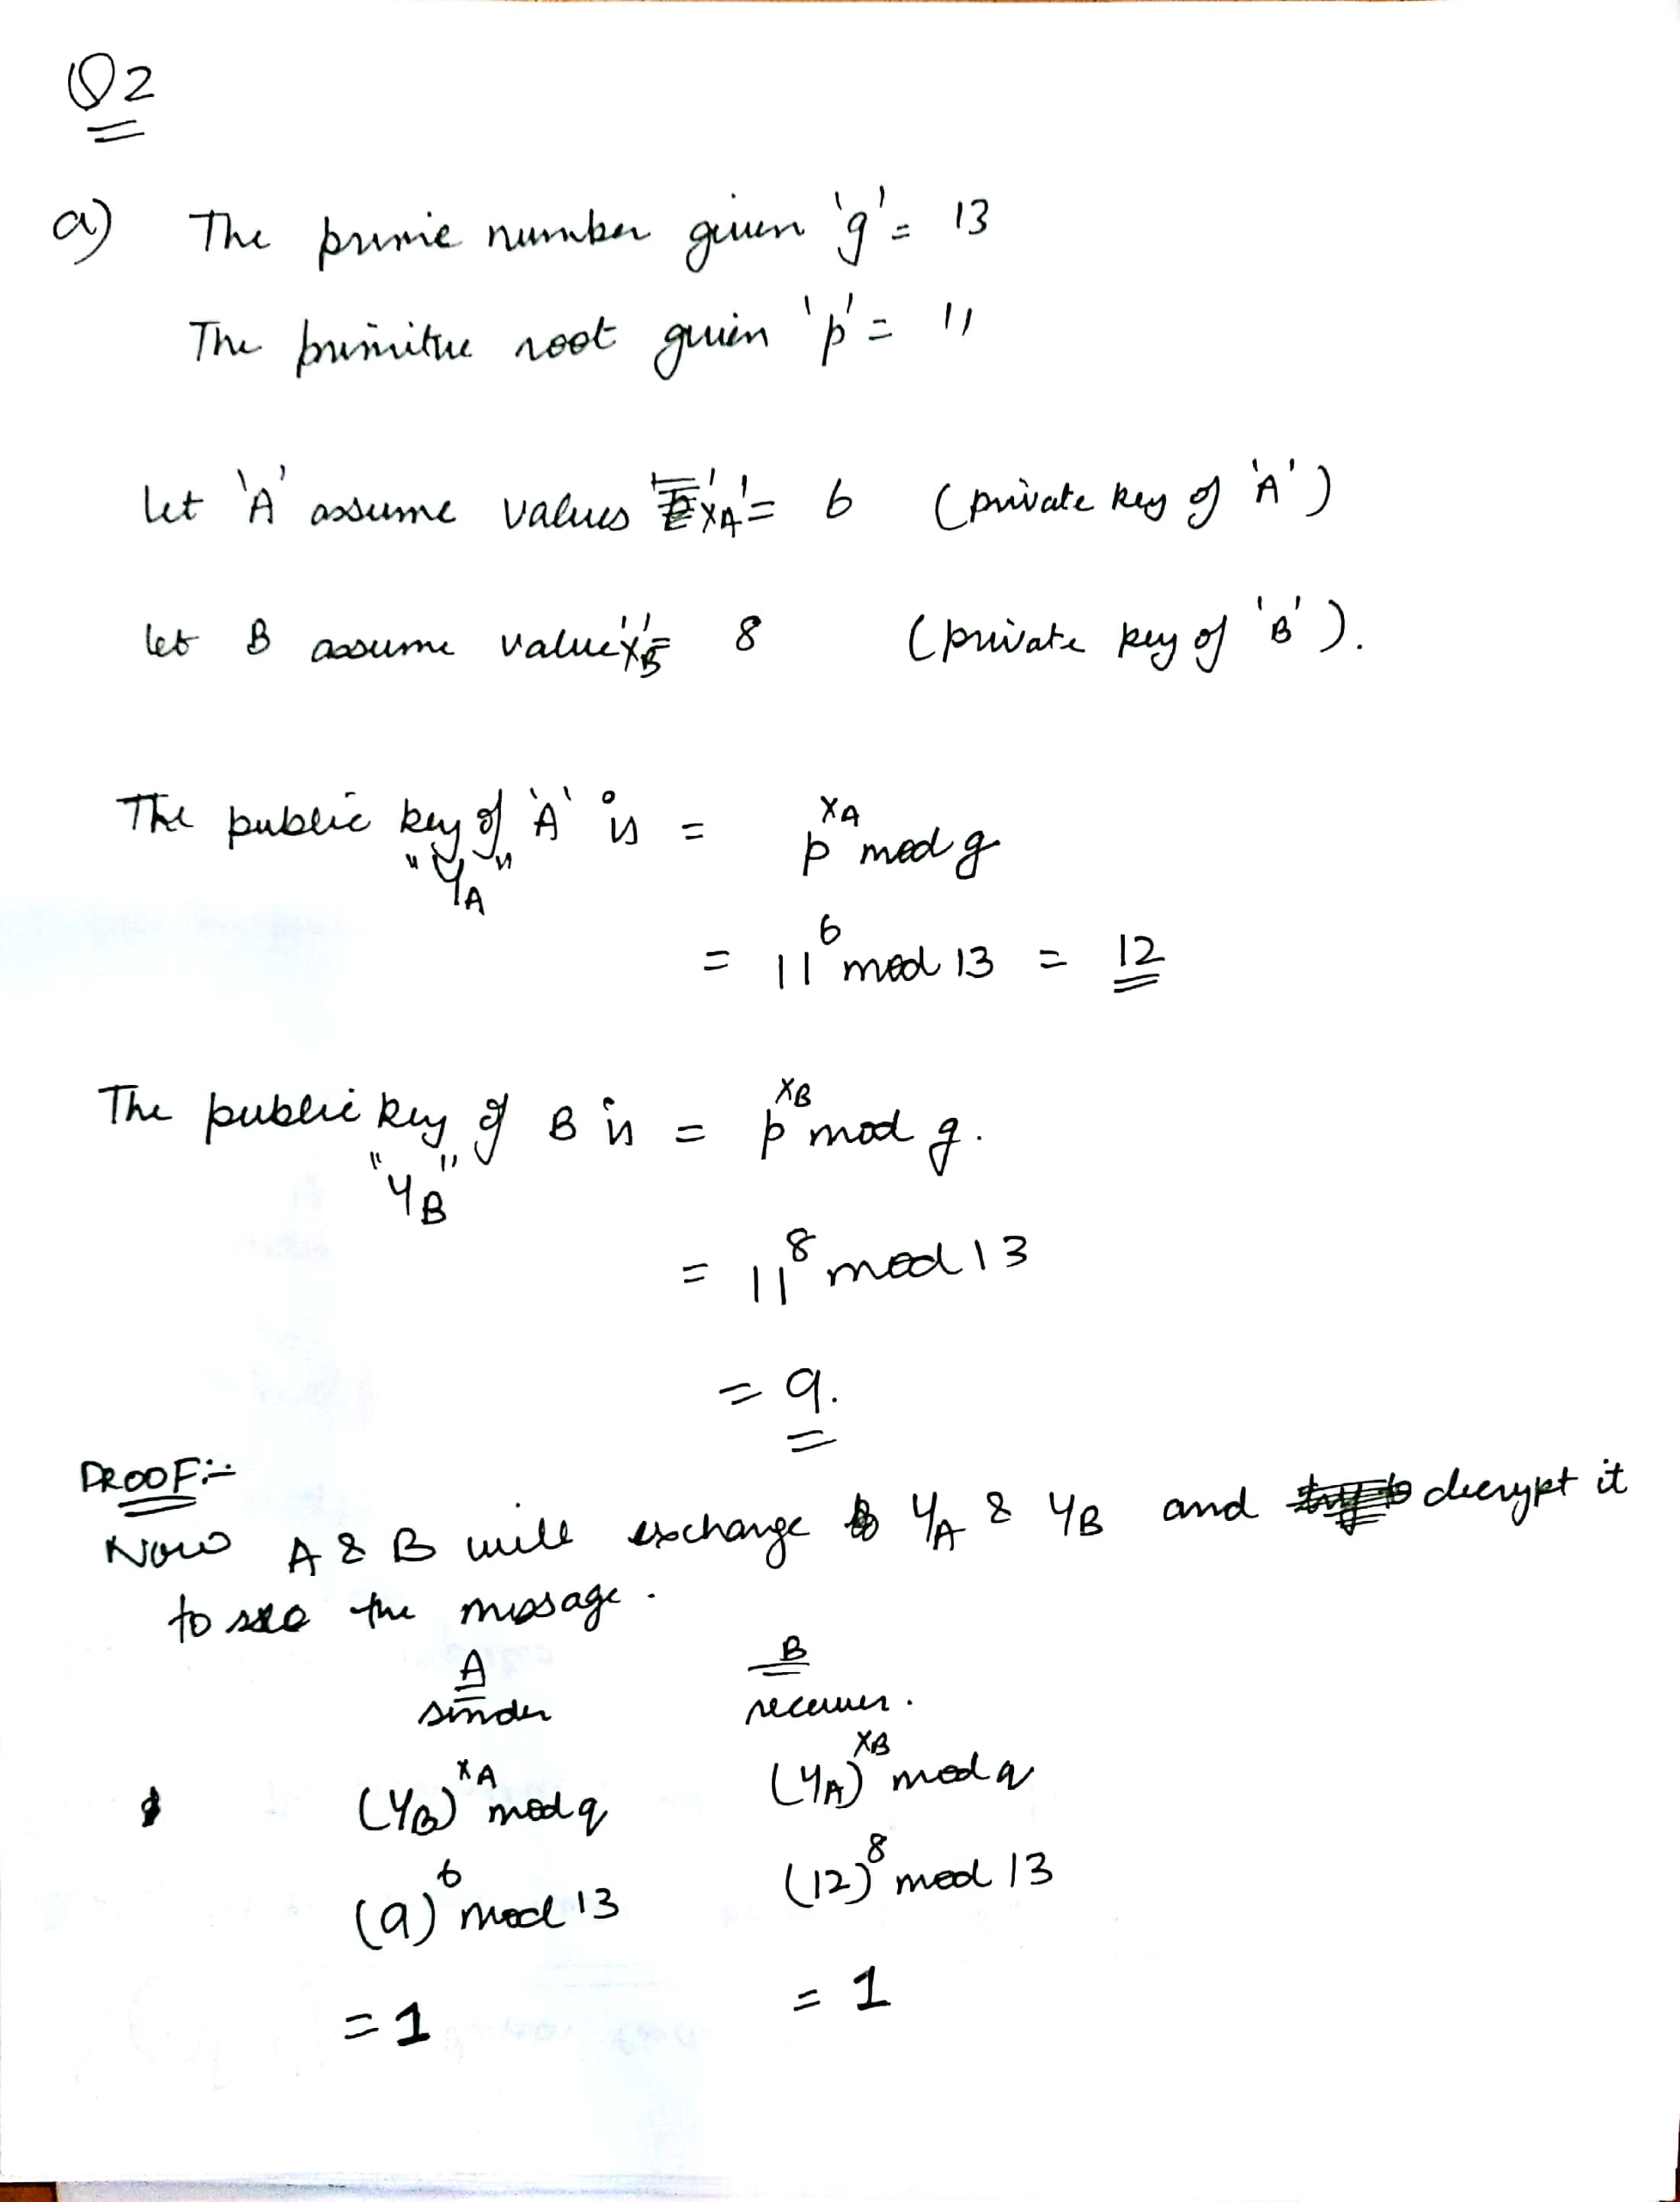 Q2
a) The prime number given 'g' = 13
The primitive root given 'p' = 11
let 'A' assume values 'XA' = 6 (private key of 'A')
let B assume value 'XB' = 8 (private key of 'B').
The public key of 'A' is = p^XA mod g
"YA"
= 11^6 mod 13 = 12
The public key of B is = p^XB mod g.
"YB"
= 11^8 mod 13
= 9.
PROOF:-
Now A & B will exchange YA & YB and decrypt it
to see the message.
A B
sender receiver.
(YB)^XA mod q (YA)^XB mod q
(9)^6 mod 13 (12)^8 mod 13
= 1 = 1